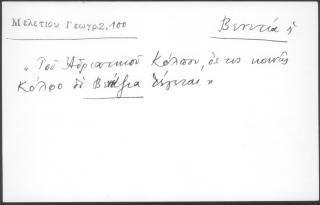 Μελετίου Γεωγρ, 100
Βενετία ἡ
„ Τοῦ Ἀδριατικοῦ Κόλπου, ὅς τις κοινῶς
Κόλφο δὶ Βενέζια λέγεται "